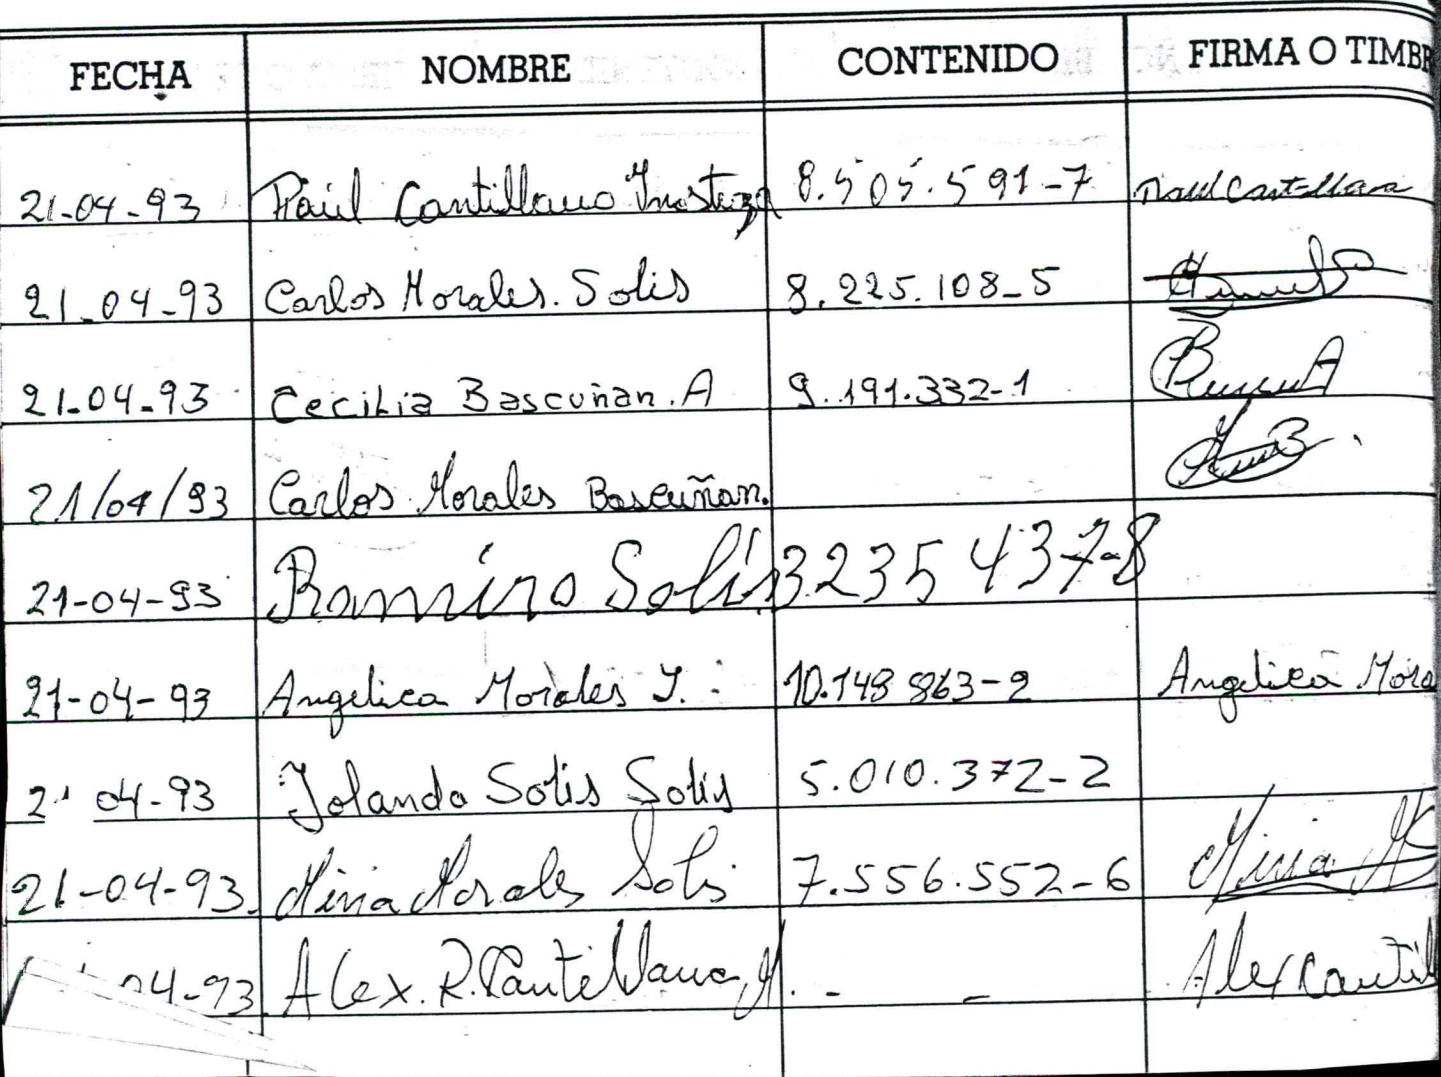 FECHA NOMBRE CONTENIDO FIRMA O TIMBR
21-04-93 Raúl Cantillano Inostroza 8.505.591-7 Raul Cantillana
21-04-93 Carlos Morales. Solis 8.225.108-5
21-04-93 Cecilia Bascuñan.A 9.191.332-1
21/04/93 Carlos Morales Bascuñan.
21-04-93 Ramiro Solis 3235437-8
21-04-93 Angelica Morales Y. 10.148863-2 Angelica Mora
04-93 Jolanda Solis Solis 5.010.372-2
21-04-93. Miria Morales Solis 7.556.552-6 Miria MS
04-93 Alex. R. Cantillana M. - - Alex Cantil